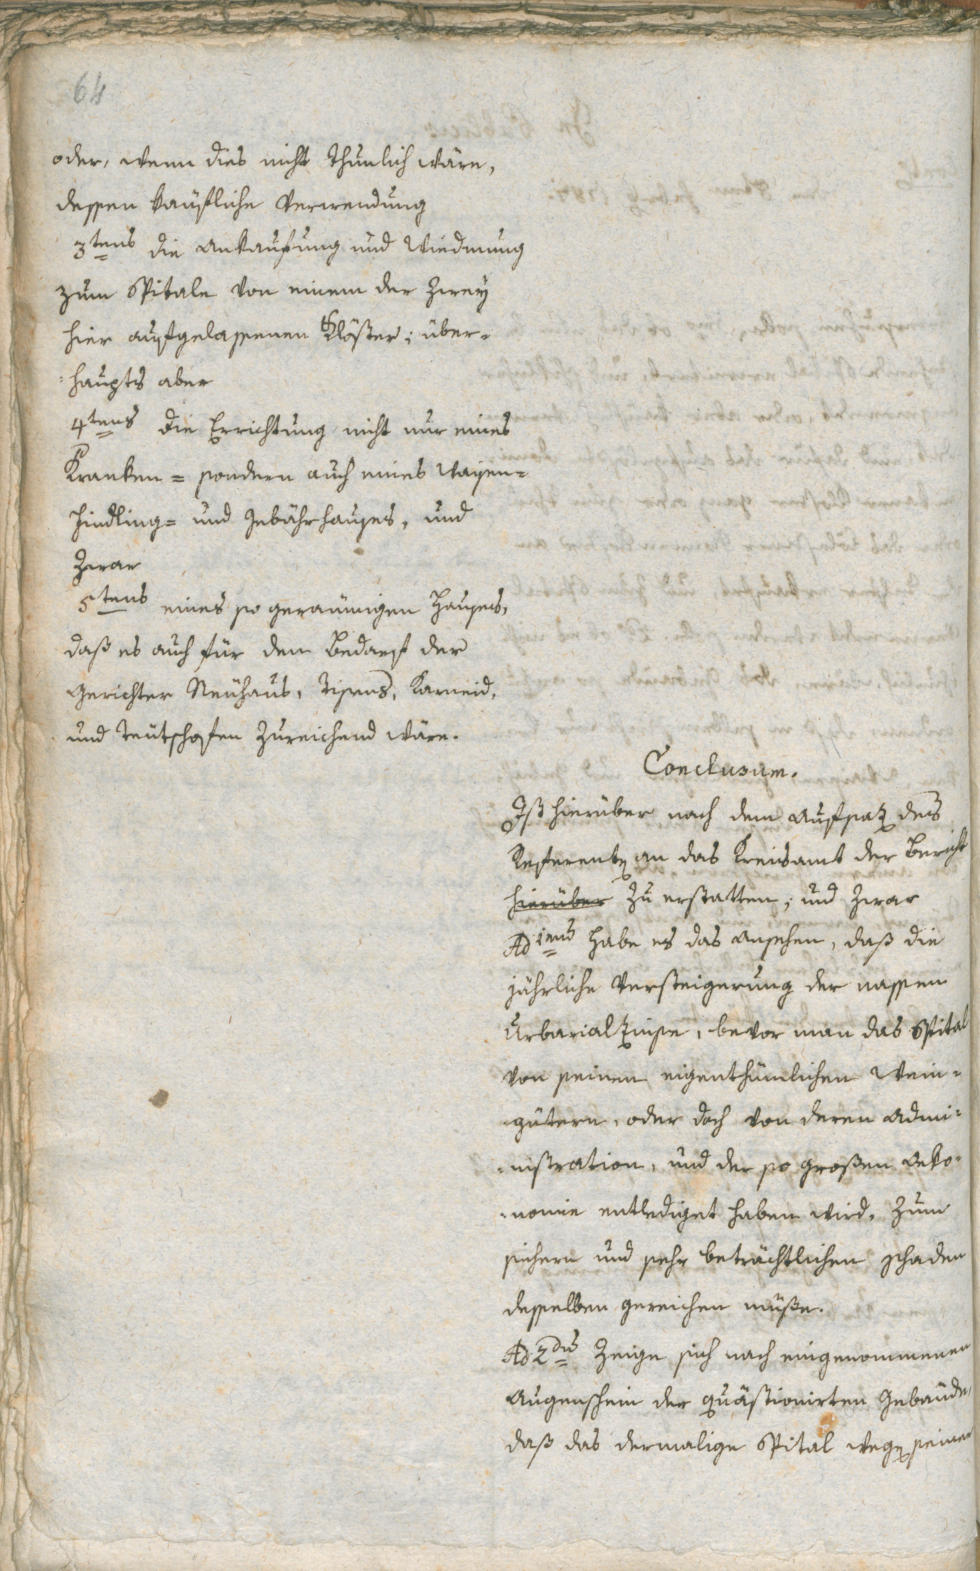 64
oder, wenn dies nicht thunlich wäre,
dessen käufliche Verwendung
3tens die Ankaufung und Wiedmung
zum Spitale von einem der zwey
hier aufgelassenen Klöster; über-
haupts aber
4tens die Errichtung nicht nur eines
Kranken= sondern auch eines Waysen=
Findling= und Gebährhauses, und
zwar
5tens eines so geraumigen Hauses,
daß es auch für den Bedarf der
Gerichter Neuhaus, Tisens, Karneid,
und Teutschofen zureichend wäre.
Conclusum.
Ist hierüber nach dem Aufsatz des
Referenten an das Kreisamt der Bericht
hierüber zu erstatten; und zwar
Ad 1mum habe es das Ansehen, daß die
jährliche Versteigerung der nassen
Urbarialzinse, bevor man das Spital
von seinen eigenthümlichen Wein=
gütern, oder doch von deren Admi=
nistration, und der so großen Oeko=
nomie entlediget haben wird, zum
sichern und sehr beträchtlichen Schaden
desselben gereichen müße.
Ad 2dum Zeige sich nach eingenommenen
Augenschein der quästionirten Gebäude,
daß das dermalige Spital wegen seiner